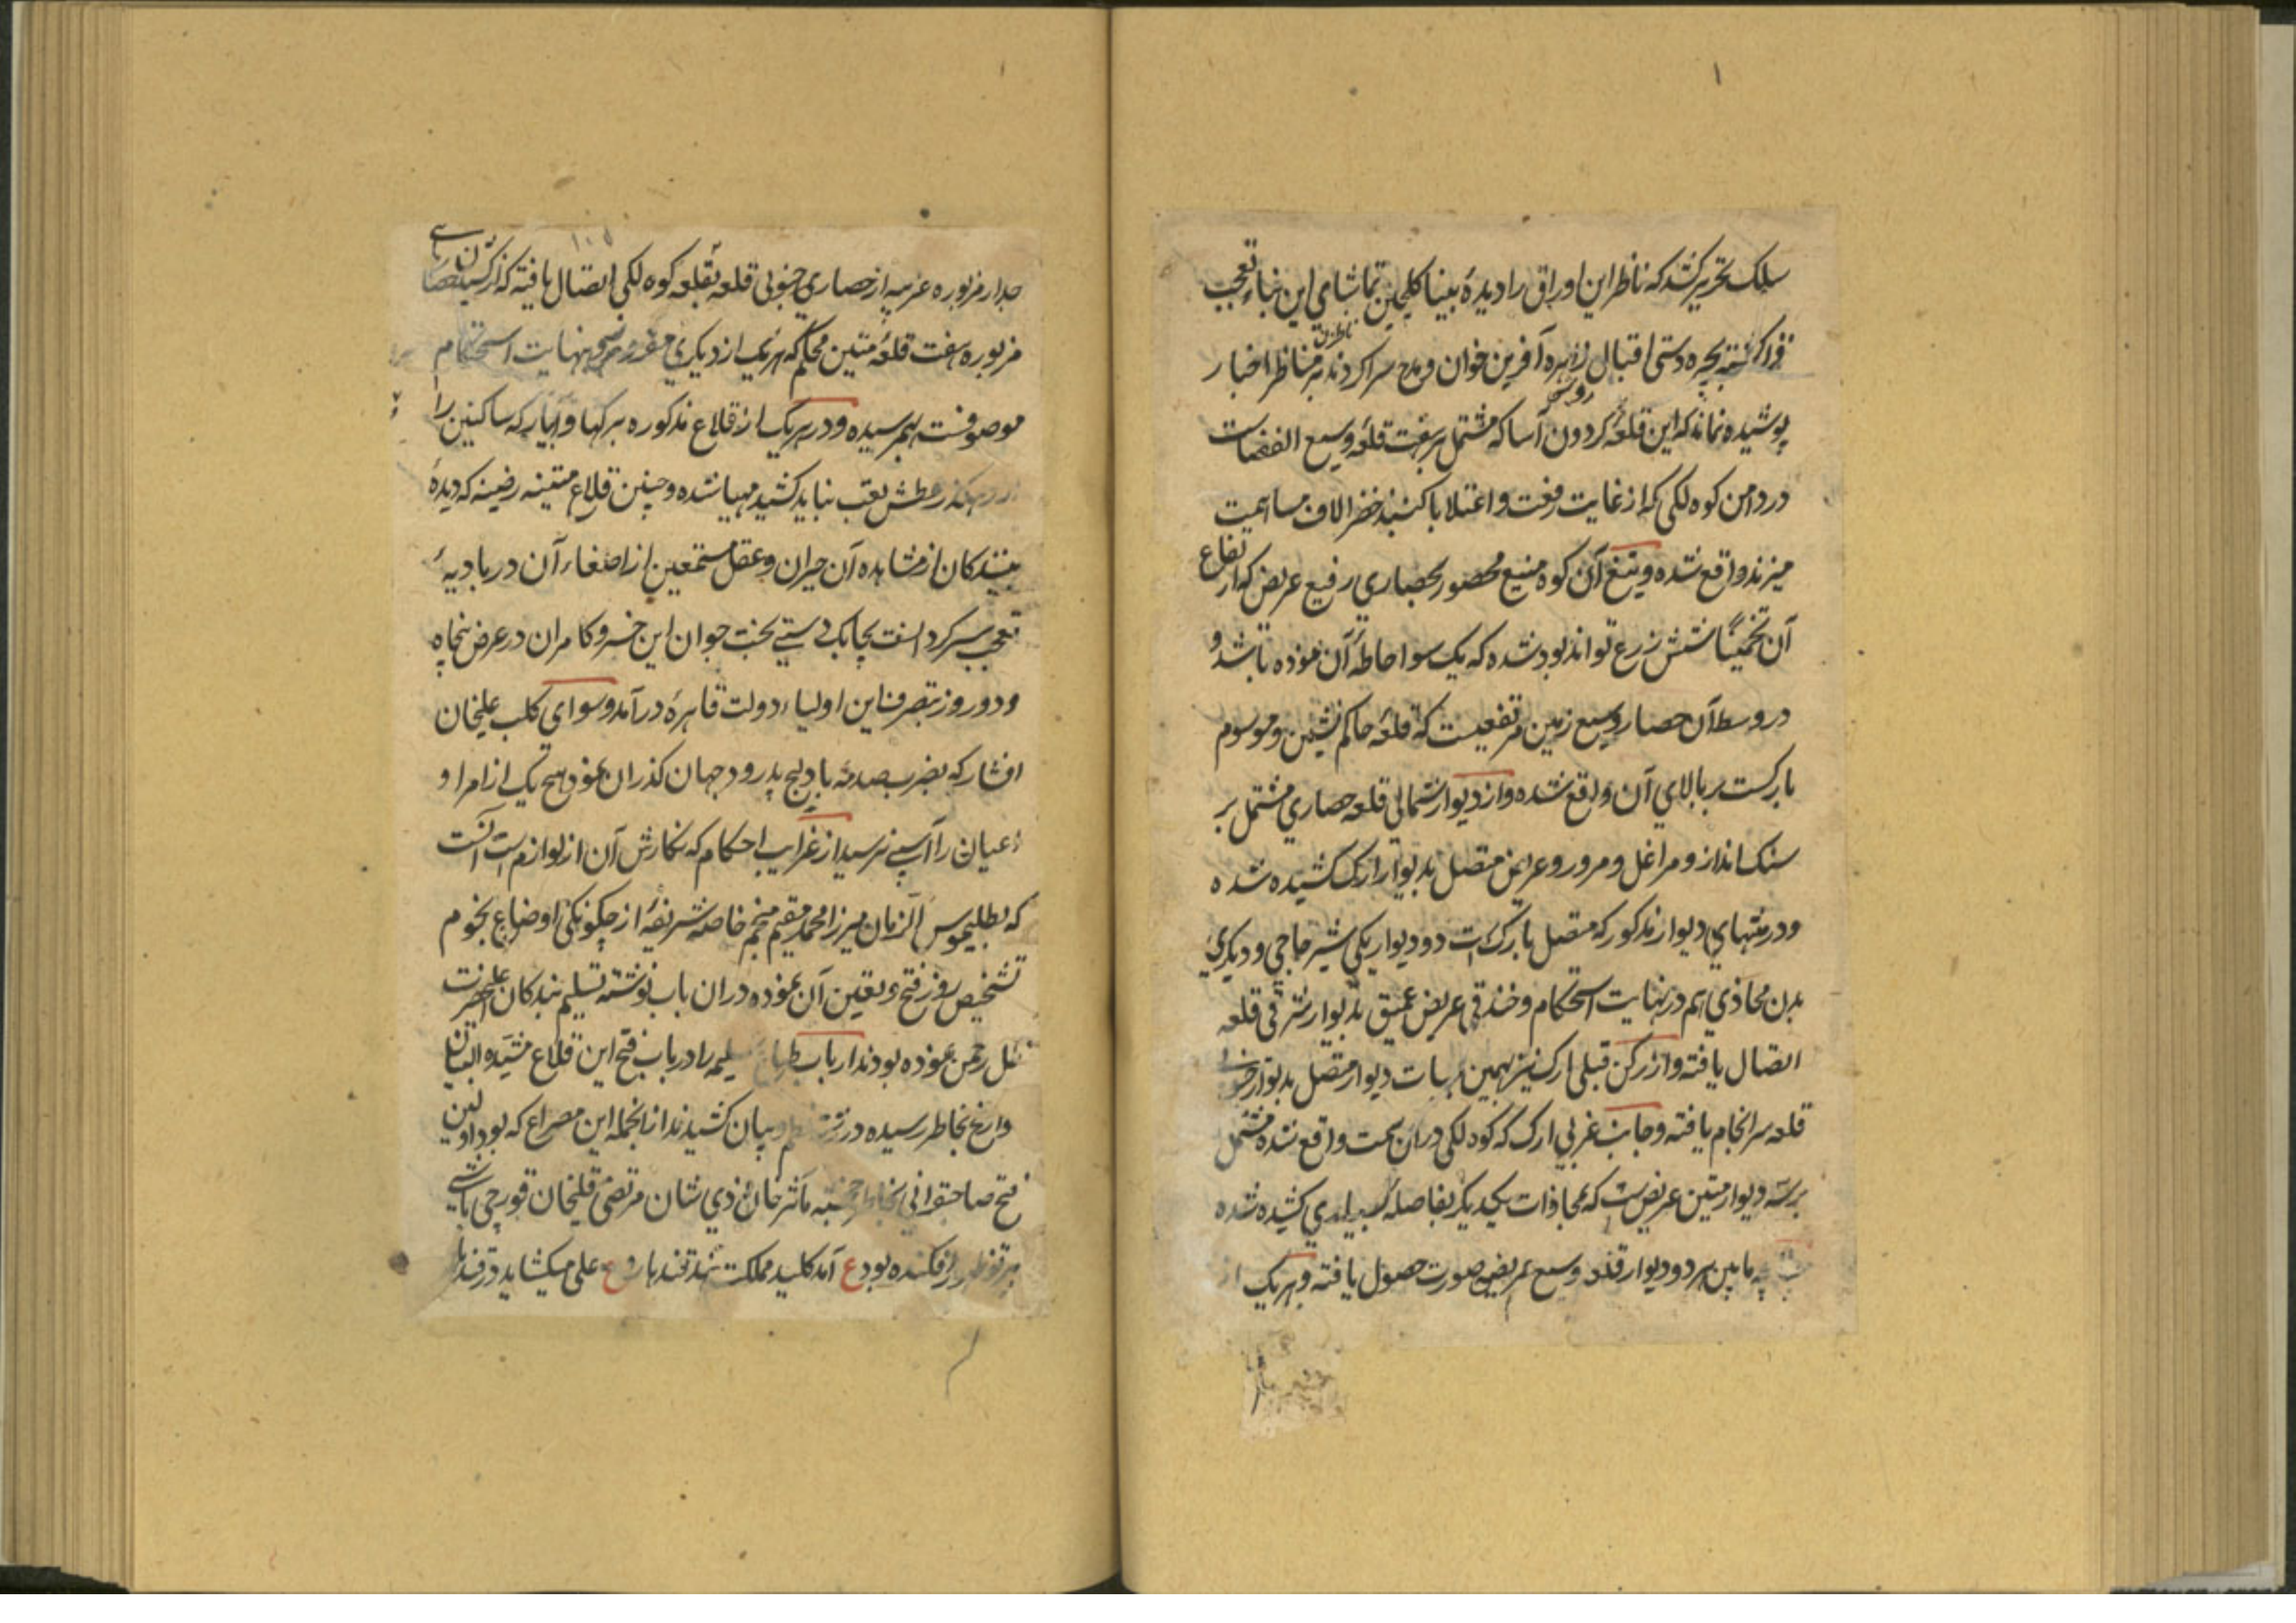 سلک تحریر کشد که ناظر این اوراق را دیدهٔ بینا کلچین تماشای این بناء تعجب
فزا کشته بچیره دستی اقبال زهره آفرین خوان و مدح سرا کردند بر مناظر اخبار
ناظران
پوشیده نماند که این قلعهٔ کردون آسا که مشتمل بر هفت قلعه وسیع الفضاست
در دامن کوه لکی که از غایت رفعت و اعتلا با کنبد خضرا لاف مساهمت
میزند واقع شده و تیغ آن کوه منیع محصور بحصاری رفیع عریض که ارتفاع
آن تخمیناً شش زرع تواند بود شده که یک سو احاطهٔ آن نموده باشد و
در وسط آن حصار وسیع زمین مرتفعیست که قلعه حاکم نشین و موسوم
بارکست بر بالای آن واقع شده و از دیوار شمالی قلعه حصاری مشتمل بر
سنک انداز و مراغل و مرور و عریض متصل بدیوار ارک کشیده شده
و در منتهای دیوار مذکور که متصل بارک است دو دیوار یکی شیر حاجی و دیکری
بدن محاذی هم در نهایت استحکام و خندقی عریض عمیق بدیوار شرقی قلعه
اتصال یافته و از رکن قبلی ارک نیز بهمین هیات دیوار متصل بدیوار جنوبی
قلعه سرانجام یافته و جانب غربی ارک که کوه لکی در آن سمت واقع شده مشتمل
بر سه دیوار متین عریض است که بمحاذات یکدیکر بفاصله بسیاری کشیده شده
چنانچه مابین هر دو دیوار قلعه وسیع عریض صورت حصول یافته و هر یک از
جدار مزبوره عرصه از حصاری جنوبی قلعه بقلعه کوه لکی اتصال یافته که از
مزبوره هفت قلعهٔ متین محکم که هر یک از دیکری مفروز و بنهایت استحکام
موصوفست بهم رسیده و در هر یک از قلاع مذکوره برکها و آبیار که ساکنین را
از رهکذر عطش تعب نباید کشید مهیا شده و چنین قلاع متینه رصینه که دیدهٔ
بینندکان از مشاهده آن حیران و عقل مستمعین از اصغاء آن در بادیهٔ
تعجب سر کردانست بچابک دستی بخت جوان این خسرو کامران در عرض پنجاه
و دو روز بتصرف این اولیاء دولت قاهره در آمد و سوای کلب علیخان
افشار که بضرب صدمهٔ بادلیج بدرود جهان کذران نمود هیچ یک از امرا و
اعیان را آسیبی نرسید از غرایب احکام که نکارش آن از لوازم است آنست
که بطلیموس الزمان میرزا محمد مقیم منجم خاصه شریفه از چکونکی اوضاع نجوم
تشخیص روز فتح و تعیین آن نموده در ان باب نوشته تسلیم بندکان اعلیحضرت
ظل رحمن نموده بودند ارباب طباع سلیمه را در باب فتح این قلاع مشیده البنیان
تواریخ بخاطر رسیده در رشته نظم و بیان کشیدند از انجمله این مصراع که بود اولین
فتح صاحبقرانی بخاطر خجسته مآثر خان ذی شان مرتضی قلیخان قورچی باشی
پرتو ظهور افکنده بود ع آمد کلید مملکت هند قندهار و ع علی میکشاید در قندهار